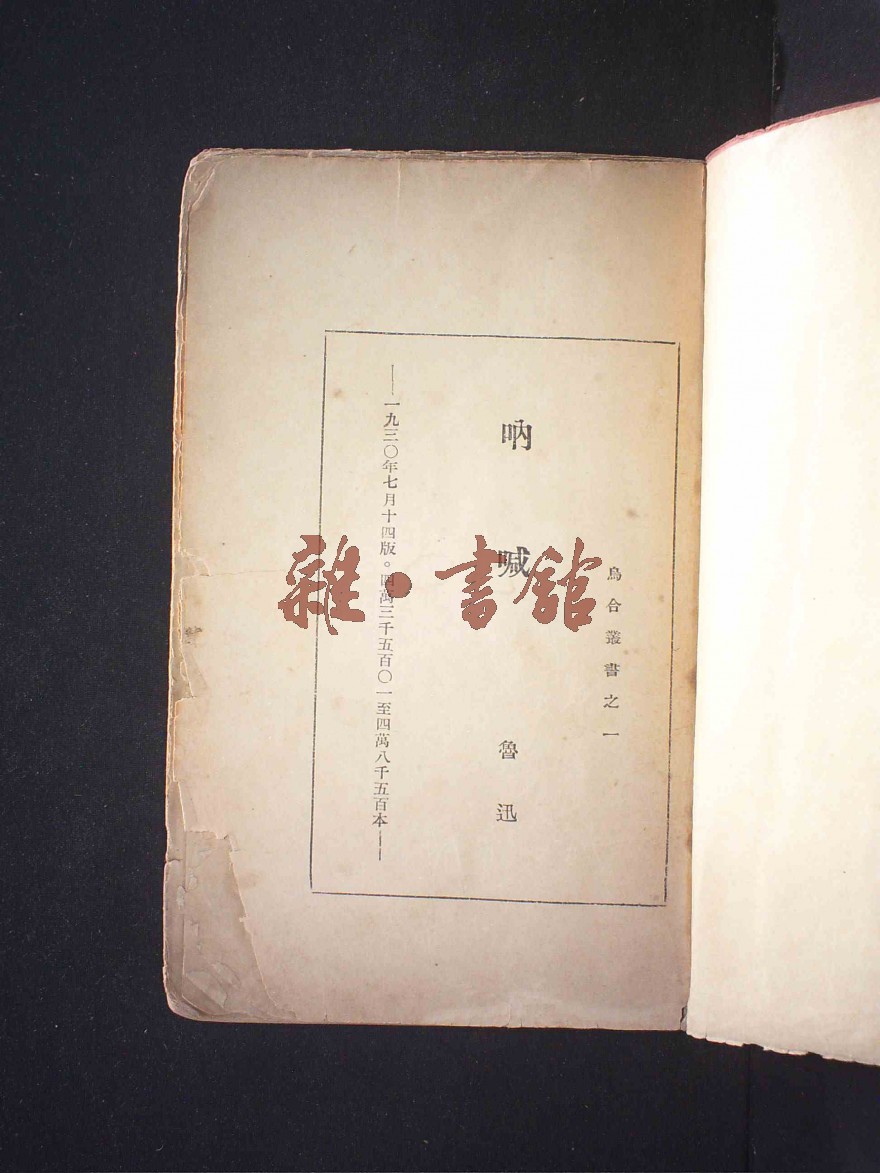 烏合叢書之一
吶喊
魯迅
——一九三〇年七月十四版。四萬三千五百〇一至四萬八千五百本——
雜·書館